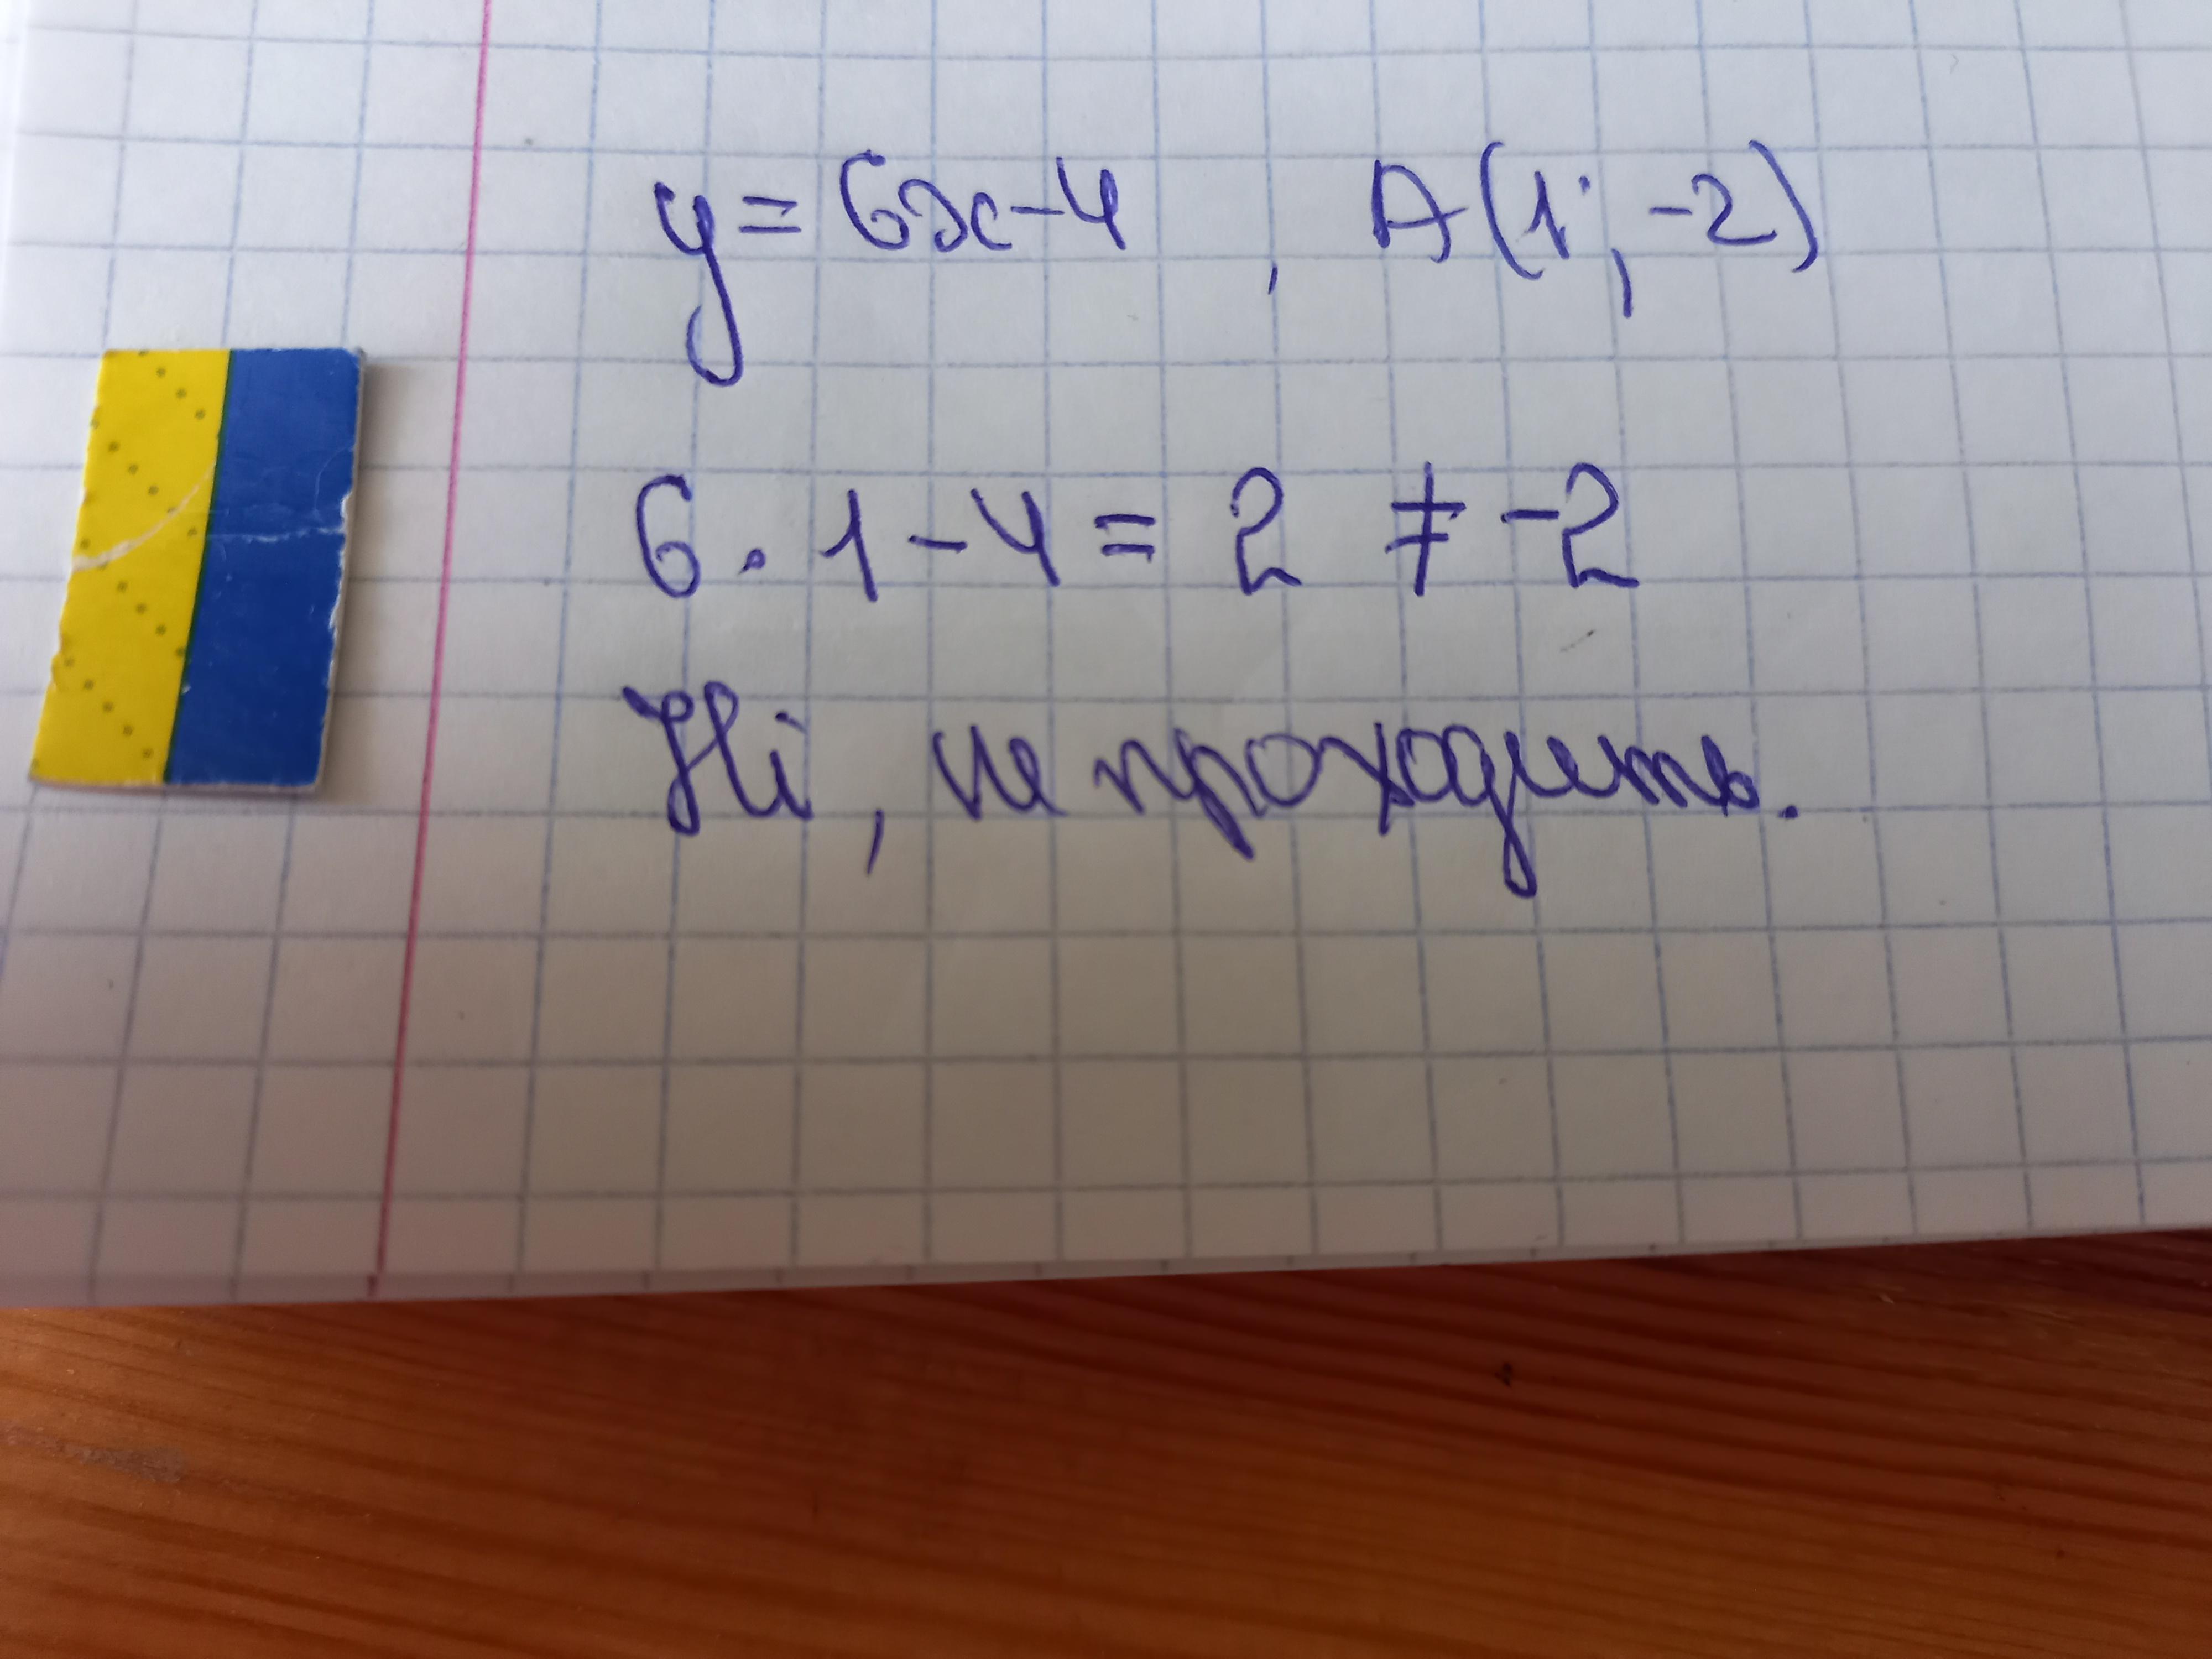 y = 6x - 4 , A(1; -2)
6 · 1 - 4 = 2 ≠ -2
Ні, не проходить.